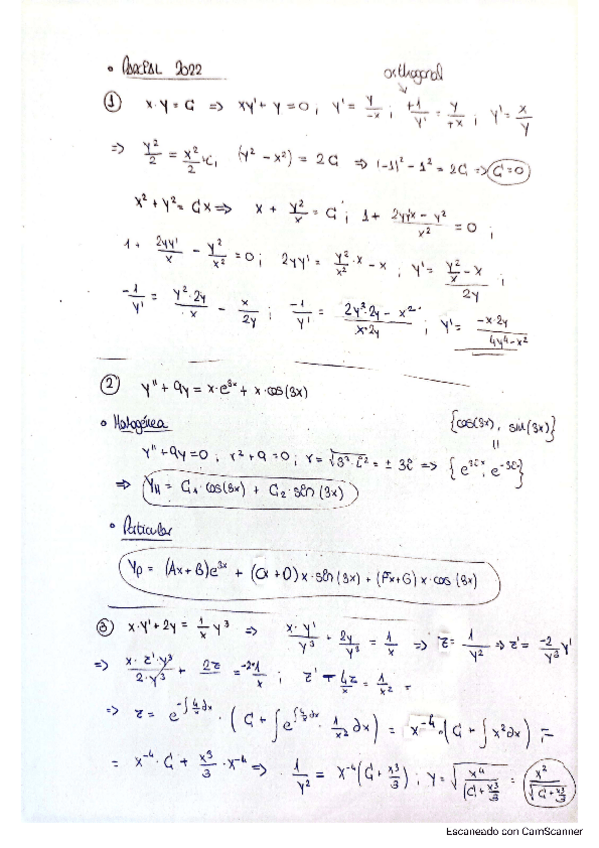 • PARCIAL 2022
orthogonal
① x·y = C ⇒ xy' + y = 0 ; y' = y/-x ; +1/y' = y/+x ; y' = x/y
⇒ y²/2 = x²/2 + C₁ (y² - x²) = 2C ⇒ (-1)² - 1² = 2C ⇒ C = 0
x² + y² = Cx ⇒ x + y²/x = C ; 1 + 2yy'x - y²/x² = 0 ;
1 + 2yy'/x - y²/x² = 0 ; 2yy' = y²/x² · x - x ; y' = y²/x - x / 2y ;
-1/y' = y²·2y/x - x/2y ; -1/y' = 2y²·2y - x²/x·2y ; y' = -x·2y/4y⁴-x²
② y'' + 9y = x·e³ˣ + x·cos(3x)
• Homogénea {cos(3x), sin(3x)}
y'' + 9y = 0 ; r² + 9 = 0 ; r = √3²·i² = ± 3i ⇒ {e³ⁱˣ, e⁻³ⁱˣ}
⇒ y_H = C₁·cos(3x) + C₂·sin(3x)
• Particular
y_p = (Ax + B)e³ˣ + (Cx + D)x·sin(3x) + (Fx + G)x·cos(3x)
③ x·y' + 2y = 1/x y³ ⇒ x·y'/y³ + 2y/y³ = 1/x ⇒ z = 1/y² ⇒ z' = -2/y³ y'
⇒ x·z'·y³/2·y³ + 2z = -2·1/x ; z' - 4z/x = 1/x² =
⇒ z = e^-∫4/x dx · (C + ∫e^∫4/x dx · 1/x² dx) = x⁻⁴·(C + ∫x² dx) =
= x⁻⁴·C + x³/3·x⁻⁴ ⇒ 1/y² = x⁻⁴(C + x³/3) ; y = √x⁴/(C + x³/3) = x²/√C + x³/3
Escaneado con CamScanner